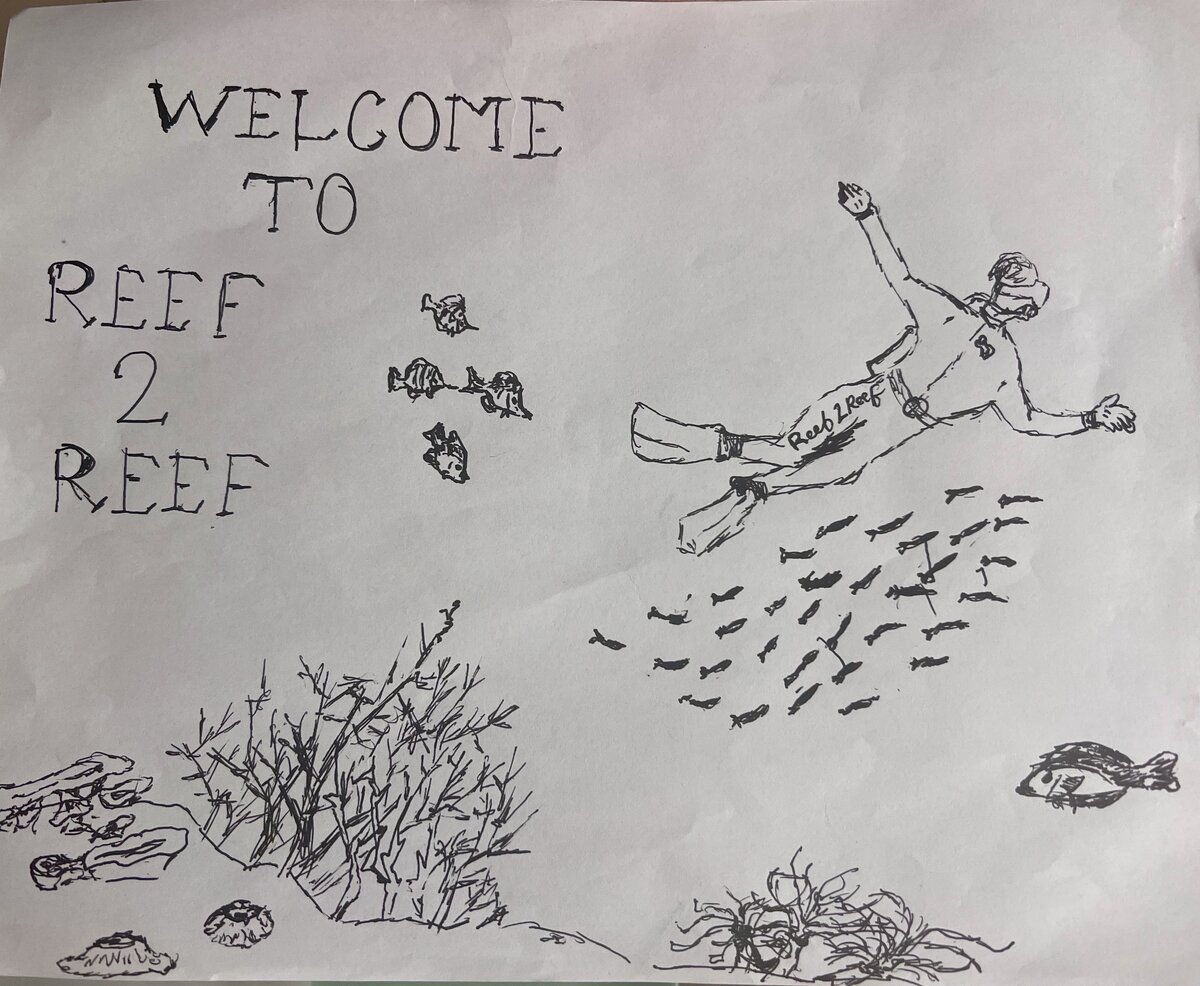 WELCOME
TO
REEF
2
REEF
8
Reef 2 Reef